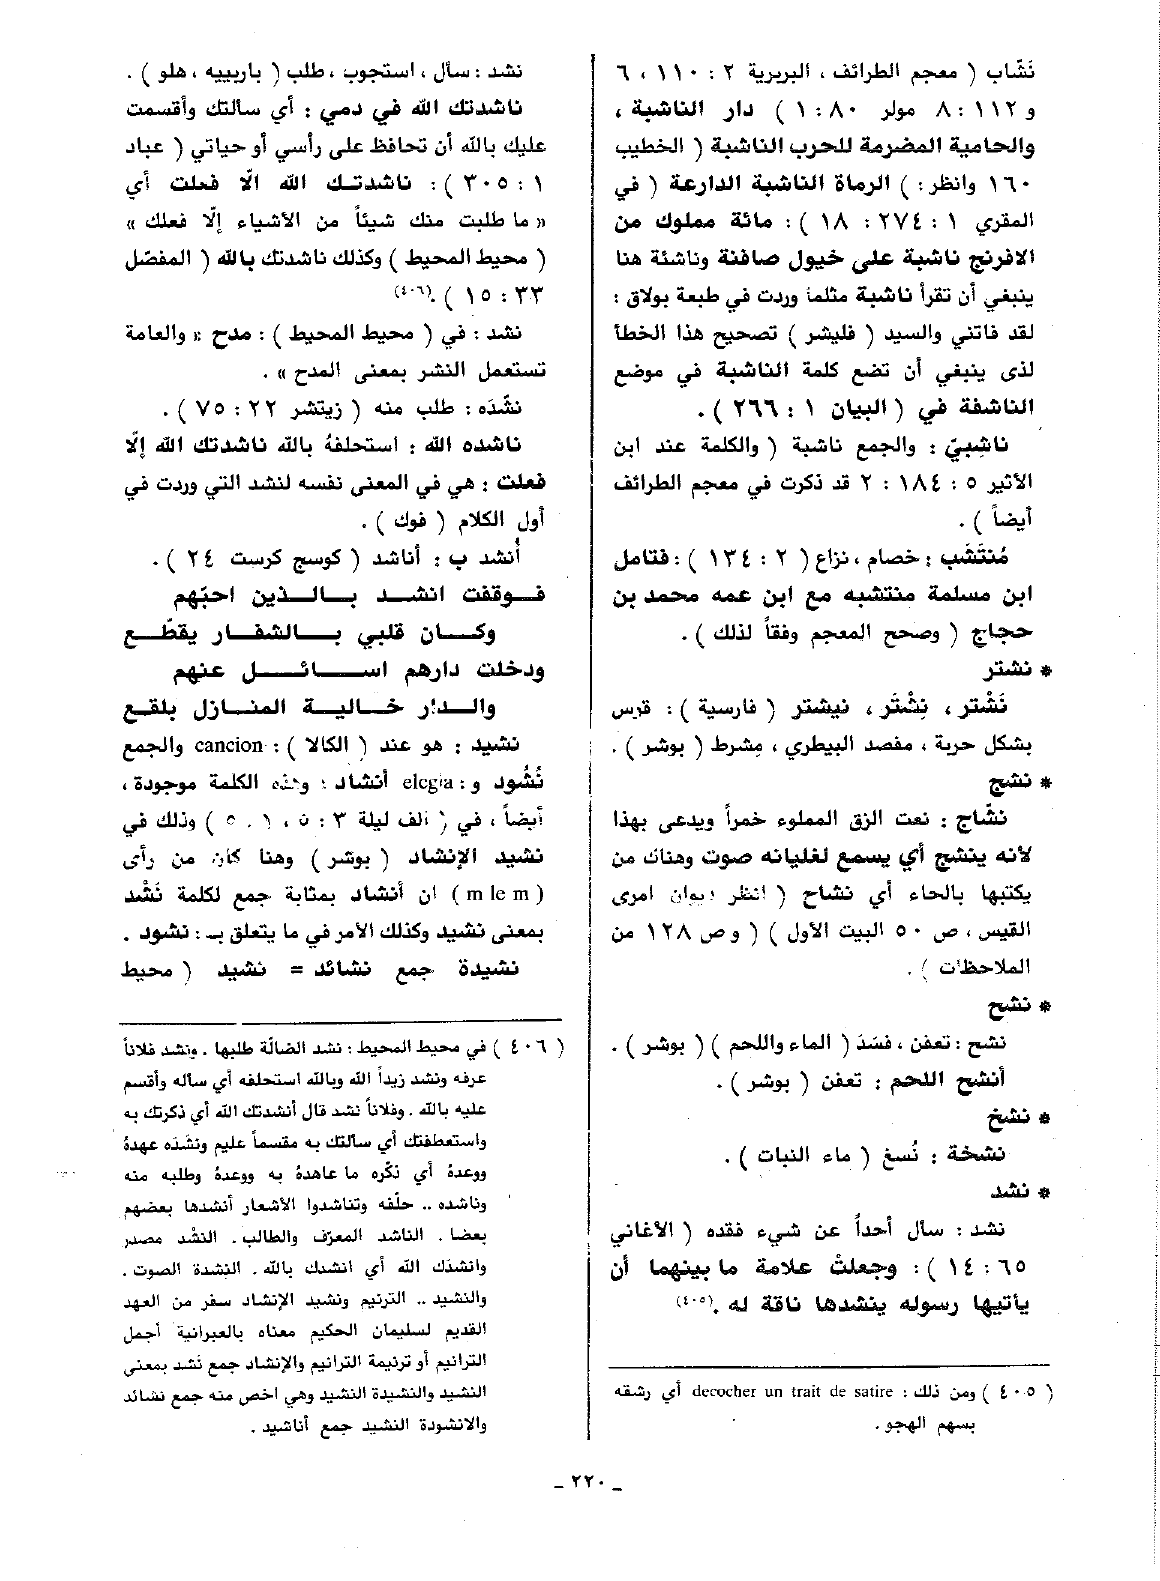 نَشّاب ( معجم الطرائف ، البربرية ٢ : ١١٠ ، ٦
و ١١٢ : ٨ مولر ٨٠ : ١ ) دار الناشبة ،
والحامية المضرمة للحرب الناشبة ( الخطيب
١٦٠ وانظر : ) الرماة الناشبة الدارعة ( في
المقري ١ : ٢٧٤ : ١٨ ) : مائة مملوك من
الافرنج ناشبة على خيول صافنة وناشئة هنا
ينبغي أن تقرأ ناشبة مثلما وردت في طبعة بولاق :
لقد فاتني والسيد ( فليشر ) تصحيح هذا الخطأ
لذى ينبغي أن تضع كلمة الناشبة في موضع
الناشفة في ( البيان ١ : ٢٦٦ ) .
ناشِبيّ : والجمع ناشبة ( والكلمة عند ابن
الأثير ٥ : ١٨٤ : ٢ قد ذكرت في معجم الطرائف
أيضاً ) .
مُنتَشَب : خصام ، نزاع ( ٢ : ١٣٤ ) : فتامل
ابن مسلمة منتشبه مع ابن عمه محمد بن
حجاج ( وصحح المعجم وفقاً لذلك ) .
* نشتر
نَشْتر ، نِشْتَر ، نيشتر ( فارسية ) : قرس
بشكل حربة ، مفصد البيطري ، مِشرط ( بوشر ) .
* نشج
نشّاج : نعت الزق المملوء خمراً ويدعى بهذا
لأنه ينشج أي يسمع لغليانه صوت وهناك من
يكتبها بالحاء أي نشاح ( انظر ديوان امرى
القيس ، ص ٥٠ البيت الأول ) ( وص ١٢٨ من
الملاحظات ) .
* نشح
نشح : تعفن ، فسَدَ ( الماء واللحم ) ( بوشر ) .
أنشح اللحم : تعفن ( بوشر ) .
* نشخ
نشخة : نُسغ ( ماء النبات ) .
* نشد
نشد : سأل أحداً عن شيء فقده ( الأغاني
٦٥ : ١٤ ) : وجعلتْ علامة ما بينهما أن
يأتيها رسوله ينشدها ناقة له .(٤٠٥)
( ٤٠٥ ) ومن ذلك : decocher un trait de satire أي رشقه
بسهم الهجو .
نشد : سأل ، استجوب ، طلب ( باربييه ، هلو ) .
ناشدتك الله في دمي : أي سألتك وأقسمت
عليك بالله أن تحافظ على رأسي أو حياتي ( عباد
١ : ٣٠٥ ) : ناشدتك الله الّا فعلت أي
« ما طلبت منك شيئاً من الأشياء إلّا فعلك »
( محيط المحيط ) وكذلك ناشدتك بالله ( المفصّل
٣٣ : ١٥ ) .(٤٠٦)
نشد : في ( محيط المحيط ) : مدح « والعامة
تستعمل النشر بمعنى المدح » .
نشّدَه : طلب منه ( زيتشر ٢٢ : ٧٥ ) .
ناشده الله : استحلفهُ بالله ناشدتك الله إلّا
فعلت : هي في المعنى نفسه لنشد التي وردت في
أول الكلام ( فوك ) .
أنشد ب : أناشد ( كوسج كرست ٢٤ ) .
فوقفت انشد بالذين احبّهم
وكان قلبي بالشفار يقطّع
ودخلت دارهم اسائل عنهم
والدار خالية المنازل بلقع
نشيد : هو عند ( الكالا ) : cancion والجمع
نُشُود و : elegia أنشاد ؛ وهذه الكلمة موجودة ،
أيضاً ، في ( ألف ليلة ٣ : ٥ ، ١ . ٥ ) وذلك في
نشيد الإنشاد ( بوشر ) وهنا كان من رأى
( m lem ) ان أنشاد بمثابة جمع لكلمة نَشْد
بمعنى نشيد وكذلك الأمر في ما يتعلق بـ : نشود .
نشيدة جمع نشائد = نشيد ( محيط
( ٤٠٦ ) في محيط المحيط : نشد الضالّة طلبها . ونشد فلاناً
عرفه ونشد زيداً الله وبالله استحلفه أي سأله وأقسم
عليه بالله . وفلاناً نشد قال أنشدتك الله أي ذكرتك به
واستعطفتك أي سألتك به مقسماً عليم ونشَدَه عهدهُ
ووعدهُ أي ذكّره ما عاهدهُ به ووعدهُ وطلبه منه
وناشده .. حلّفه وتناشدوا الأشعار أنشدها بعضهم
بعضا . الناشد المعرّف والطالب . النشْد مصدر
وانشدَك الله أي انشدك بالله . النشدة الصوت .
والنشيد .. الترنيم ونشيد الإنشاد سفر من العهد
القديم لسليمان الحكيم معناه بالعبرانية أجمل
الترانيم أو ترنيمة الترانيم والإنشاد جمع نَشد بمعنى
النشيد والنشيدة النشيد وهي اخص منه جمع نشائد
والانشودة النشيد جمع أناشيد .
ـ ٢٢٠ ـ